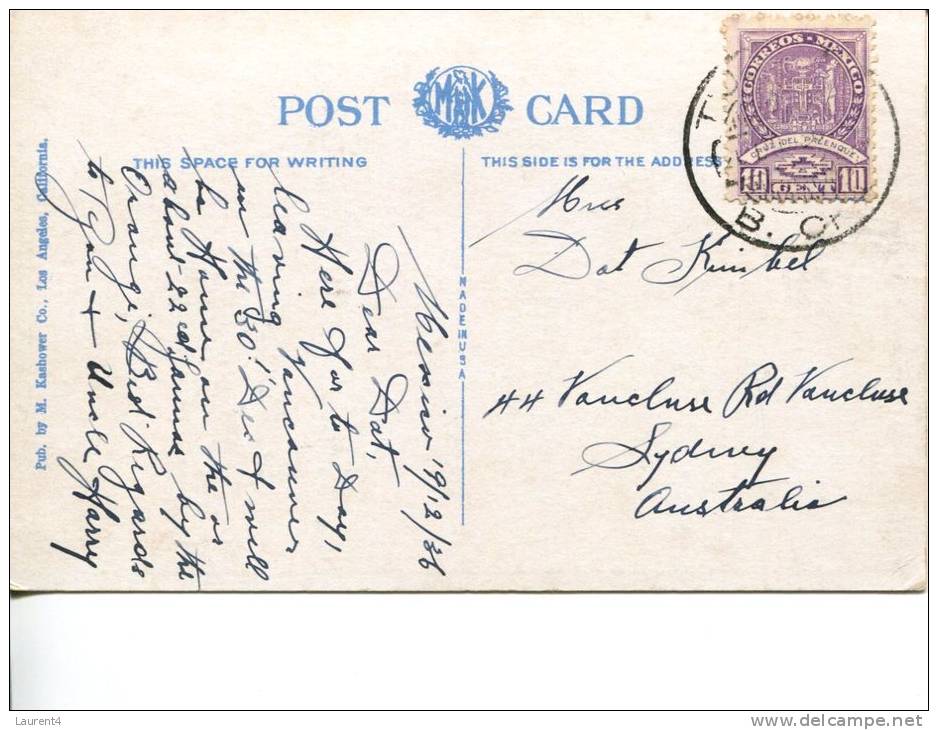 POST CARD
M K
THIS SPACE FOR WRITING
THIS SIDE IS FOR THE ADDRESS
CORREOS · MEXICO
CRUZ DEL PALENQUE
10 CENT 10
B. C
Mexico 19/12/36
Dear Dot,
Here for to Day,
leaving Vancouver
on the 30th Dec & will
be Home on the or
about 22ed January by the
Orangi, Best Regards
to + Uncle Harry
Dot
44 Vaucluse Rd Vaucluse
Sydney
Australia
MADE IN USA
Pub. by M. Kashower Co., Los Angeles, California.
Laurent4
www.delcampe.net